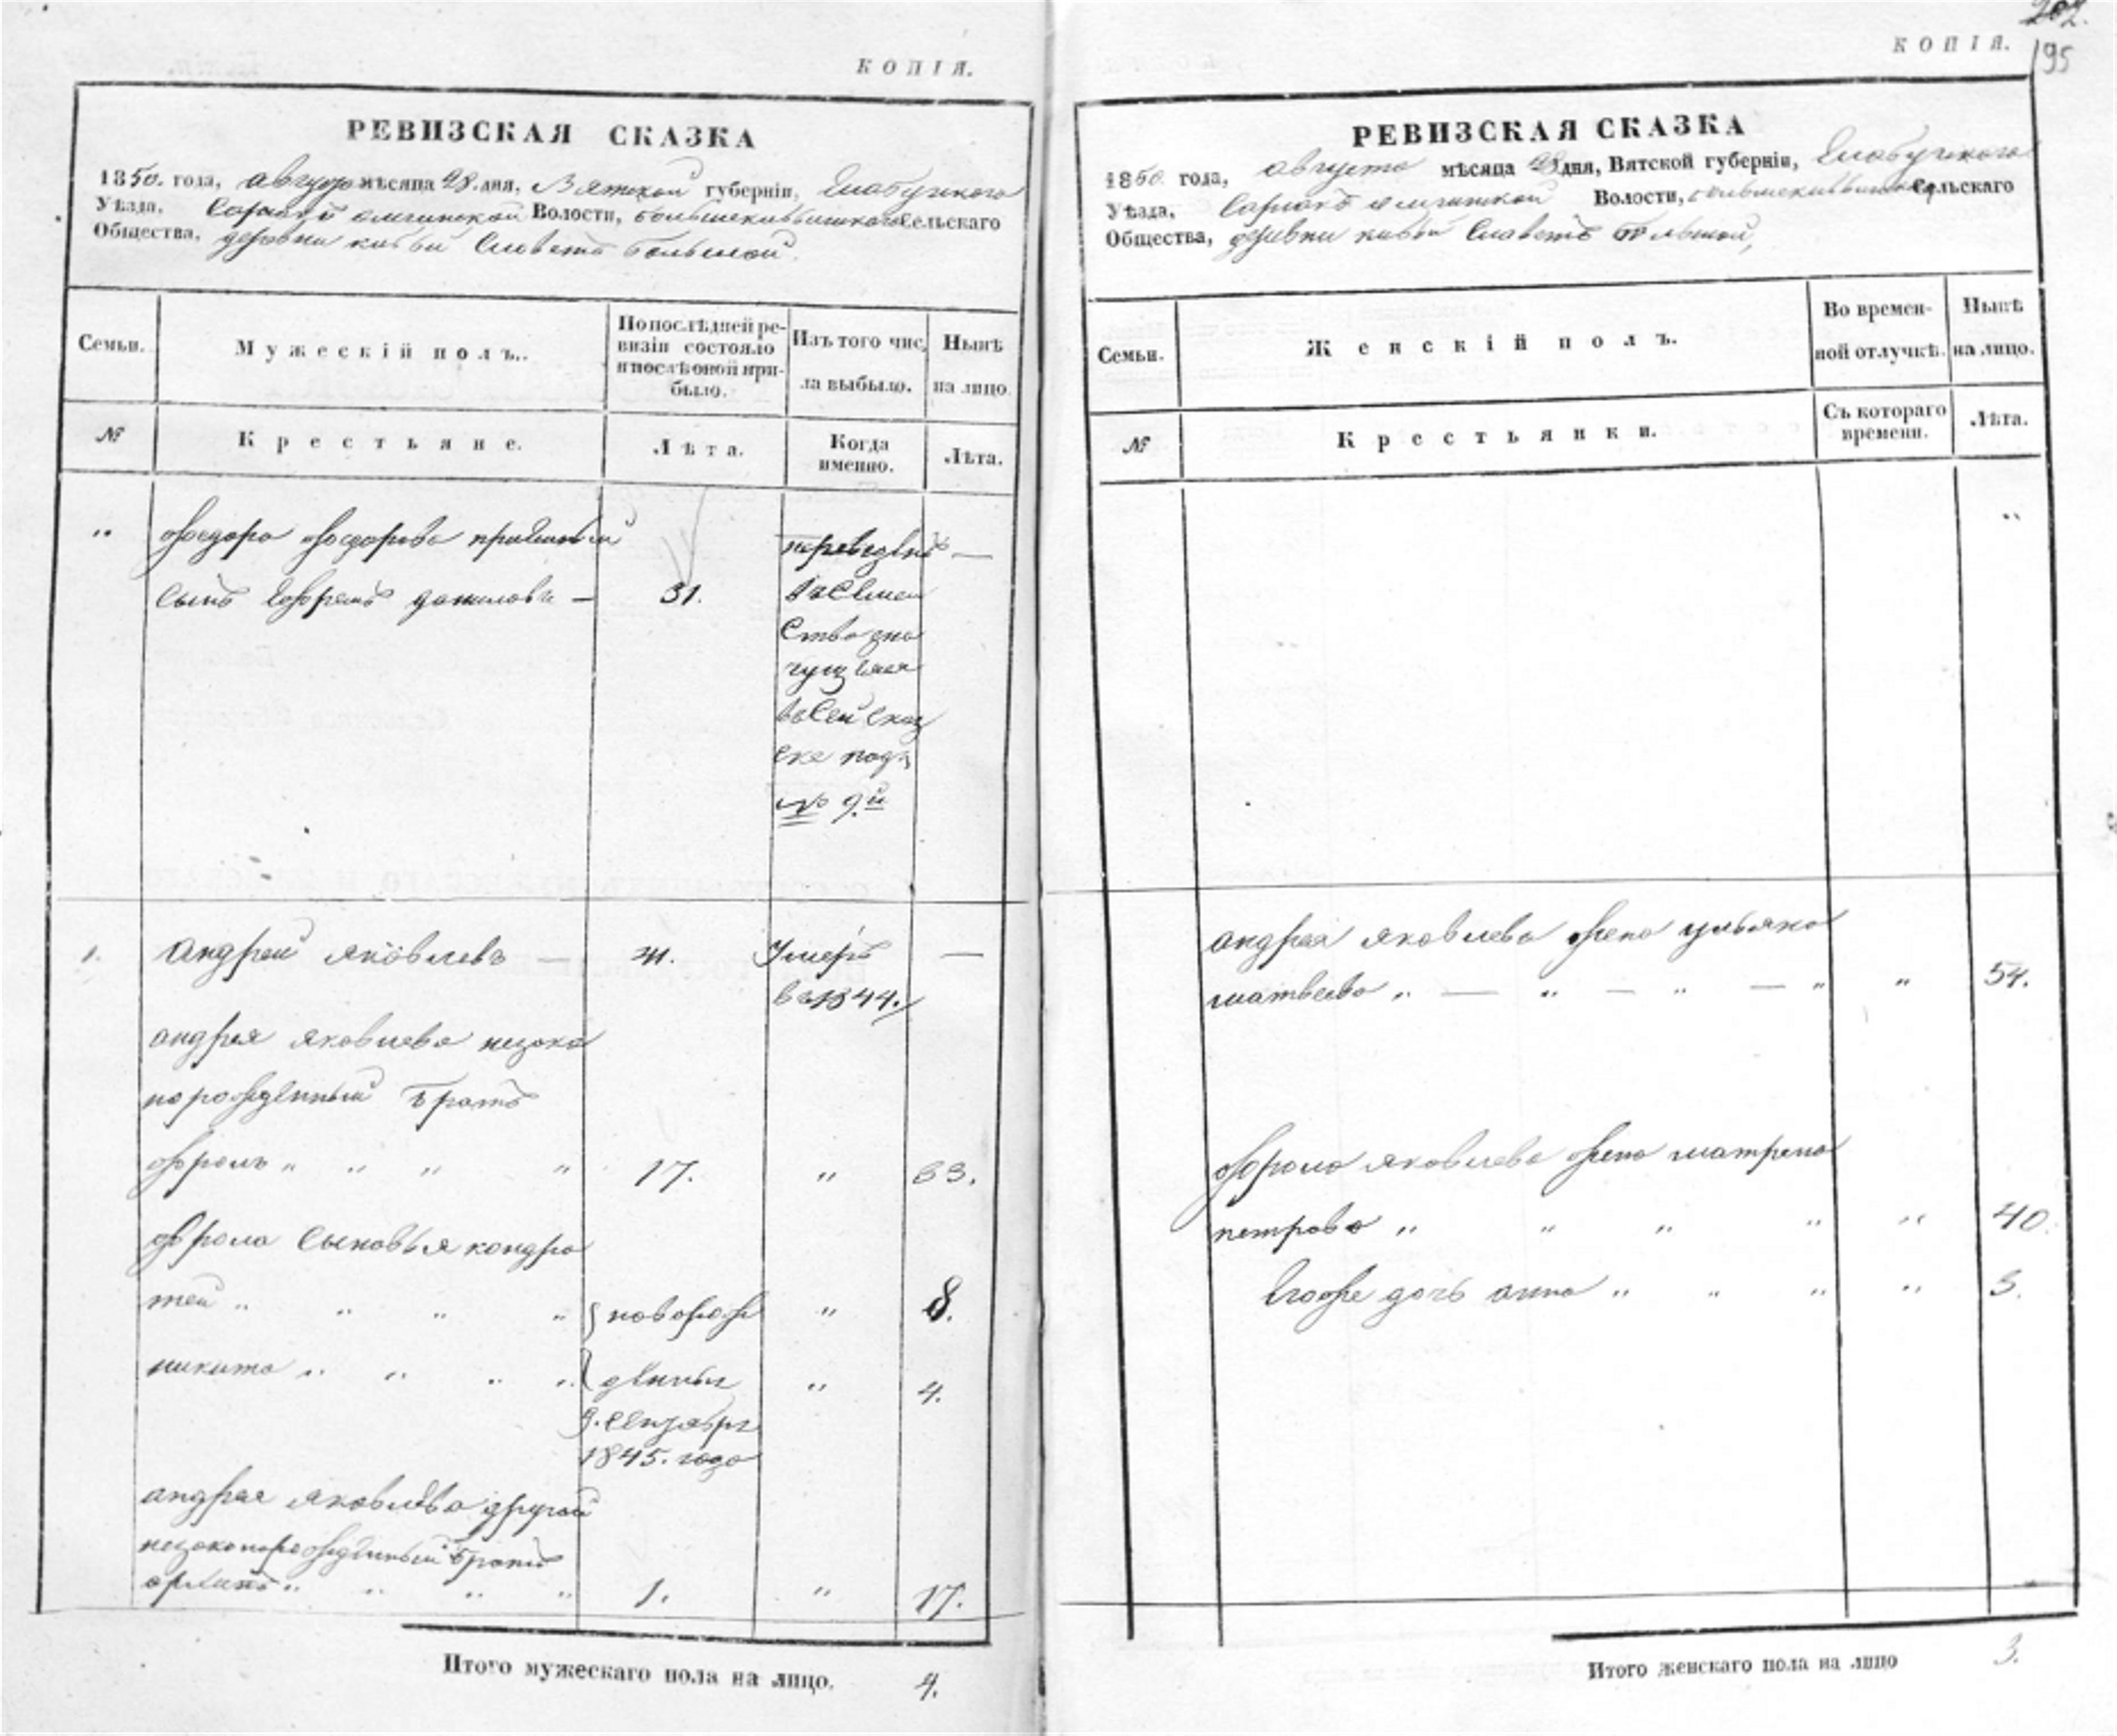 КОПІЯ.
РЕВИЗСКАЯ СКАЗКА
1850. года, августа мѣсяца 28. дня, Вятской губерніи, Елабужского
Уѣзда, Волости, Сельскаго
Общества, деревни Большой.
Семьи.
Мужескій полъ.
По послѣдней ре-
визіи состояло
и послѣ оной при-
было.
Изъ того чис-
ла выбыло.
Нынѣ
на лицо.
№
Крестьяне.
Лѣта.
Когда
именно.
Лѣта.
„ Федора Федорова приемный
сынъ Ефремъ Данилова — 31.
переведенъ —
въ семей
ство зна
чущееся
въ сей сказ
ке подъ
№ 9й
1. Андрей Яковлевъ — 41. Умеръ —
въ 1844.
Андрея Яковлева незако
норожденный братъ
Фролъ „ „ „ „ 17. „ 33.
Фрола сыновья Кондра
тей „ „ „ „ новорож „ 8.
Никита „ „ „ „ денны „ 4.
9. сентября
1845. года
Андрея Яковлева другой
незаконорожденный братъ
„ „ „ „ 1. „ 17.
Итого мужескаго пола на лицо. 4.
202.
195
КОПІЯ.
РЕВИЗСКАЯ СКАЗКА
1850. года, августа мѣсяца 28 дня, Вятской губерніи, Елабужского
Уѣзда, Волости, Сельскаго
Общества, деревни Большой,
Семьи.
Женскій полъ.
Во времен-
ной отлучкѣ.
Нынѣ
на лицо.
№
Крестьянки.
Съ котораго
времени.
Лѣта.
„
Андрея Яковлева жена Ульяна
Матвеева „ — „ — „ — „ „ 54.
Фрола Яковлева жена Матрена
Петрова „ „ „ „ „ 40.
Егоже дочь Анна „ „ „ „ 3.
Итого женскаго пола на лицо 3.